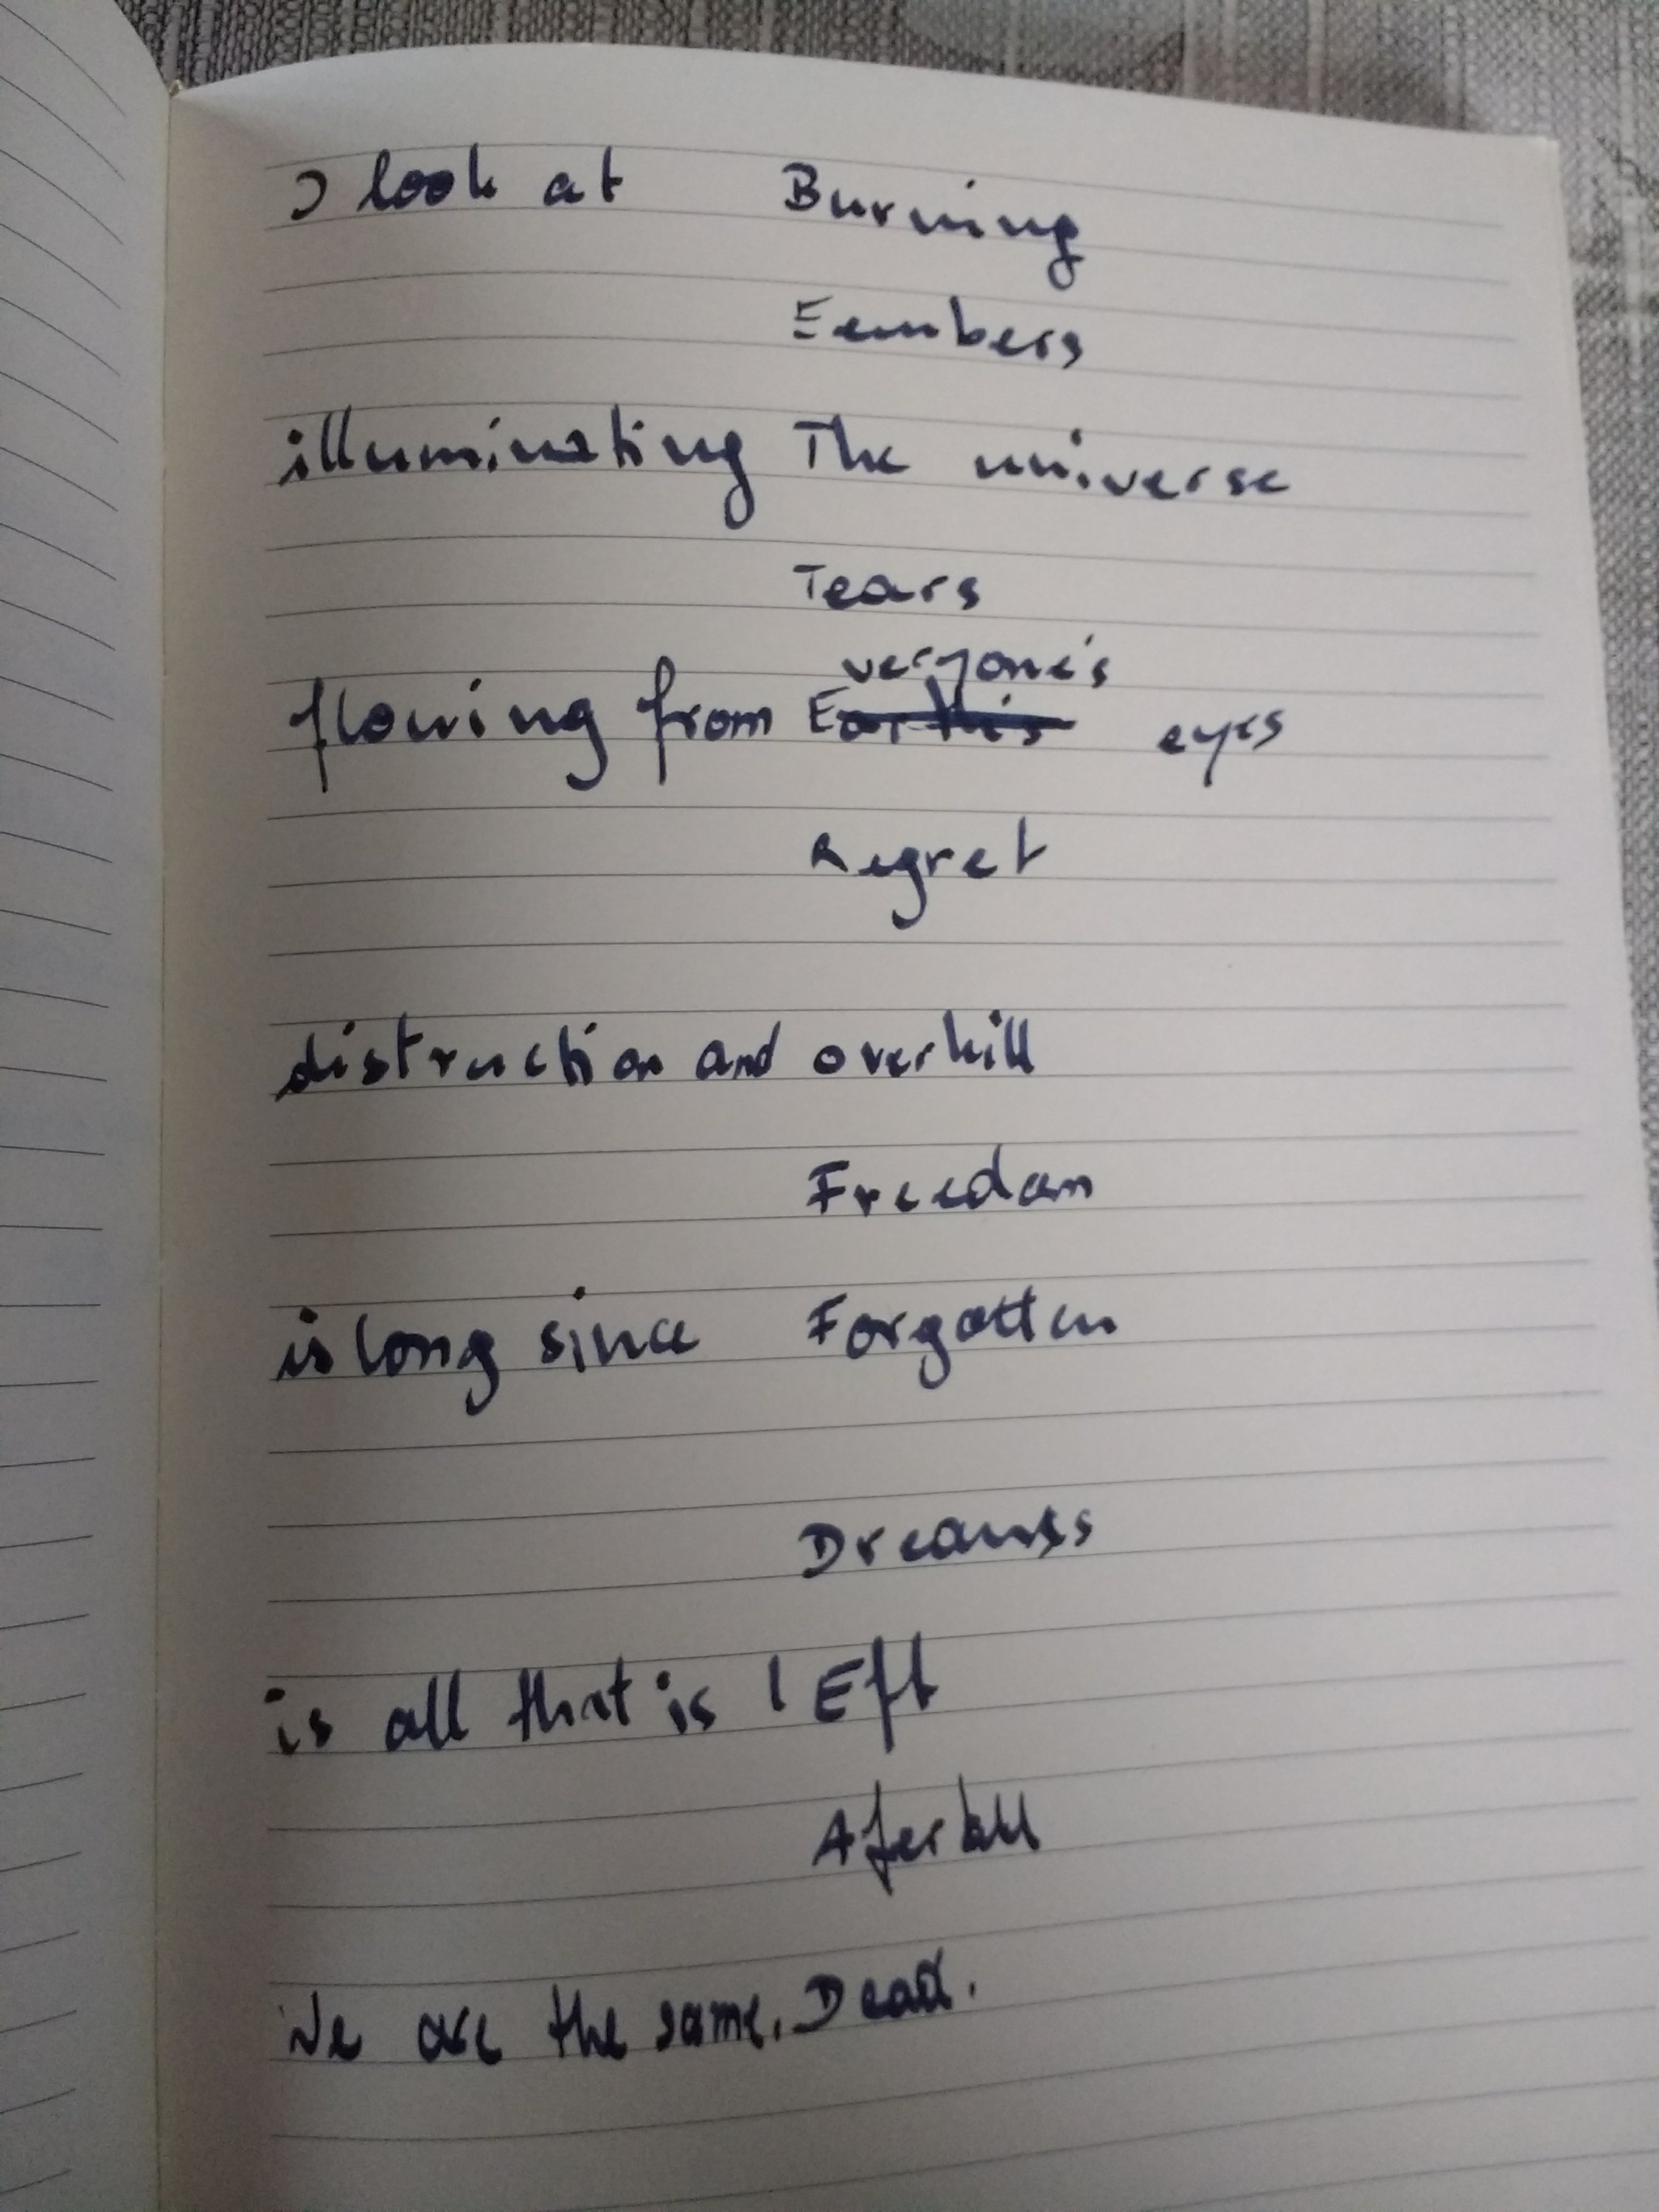 I look at Burning
Eembers
illuminating The universe
Tears
veryone's
flowing from Earth's eyes
Regret
distruction and overkill
Freedom
is long since Forgotten
Dreams
is all that is lEft
Aferall
We are the same. Dead.